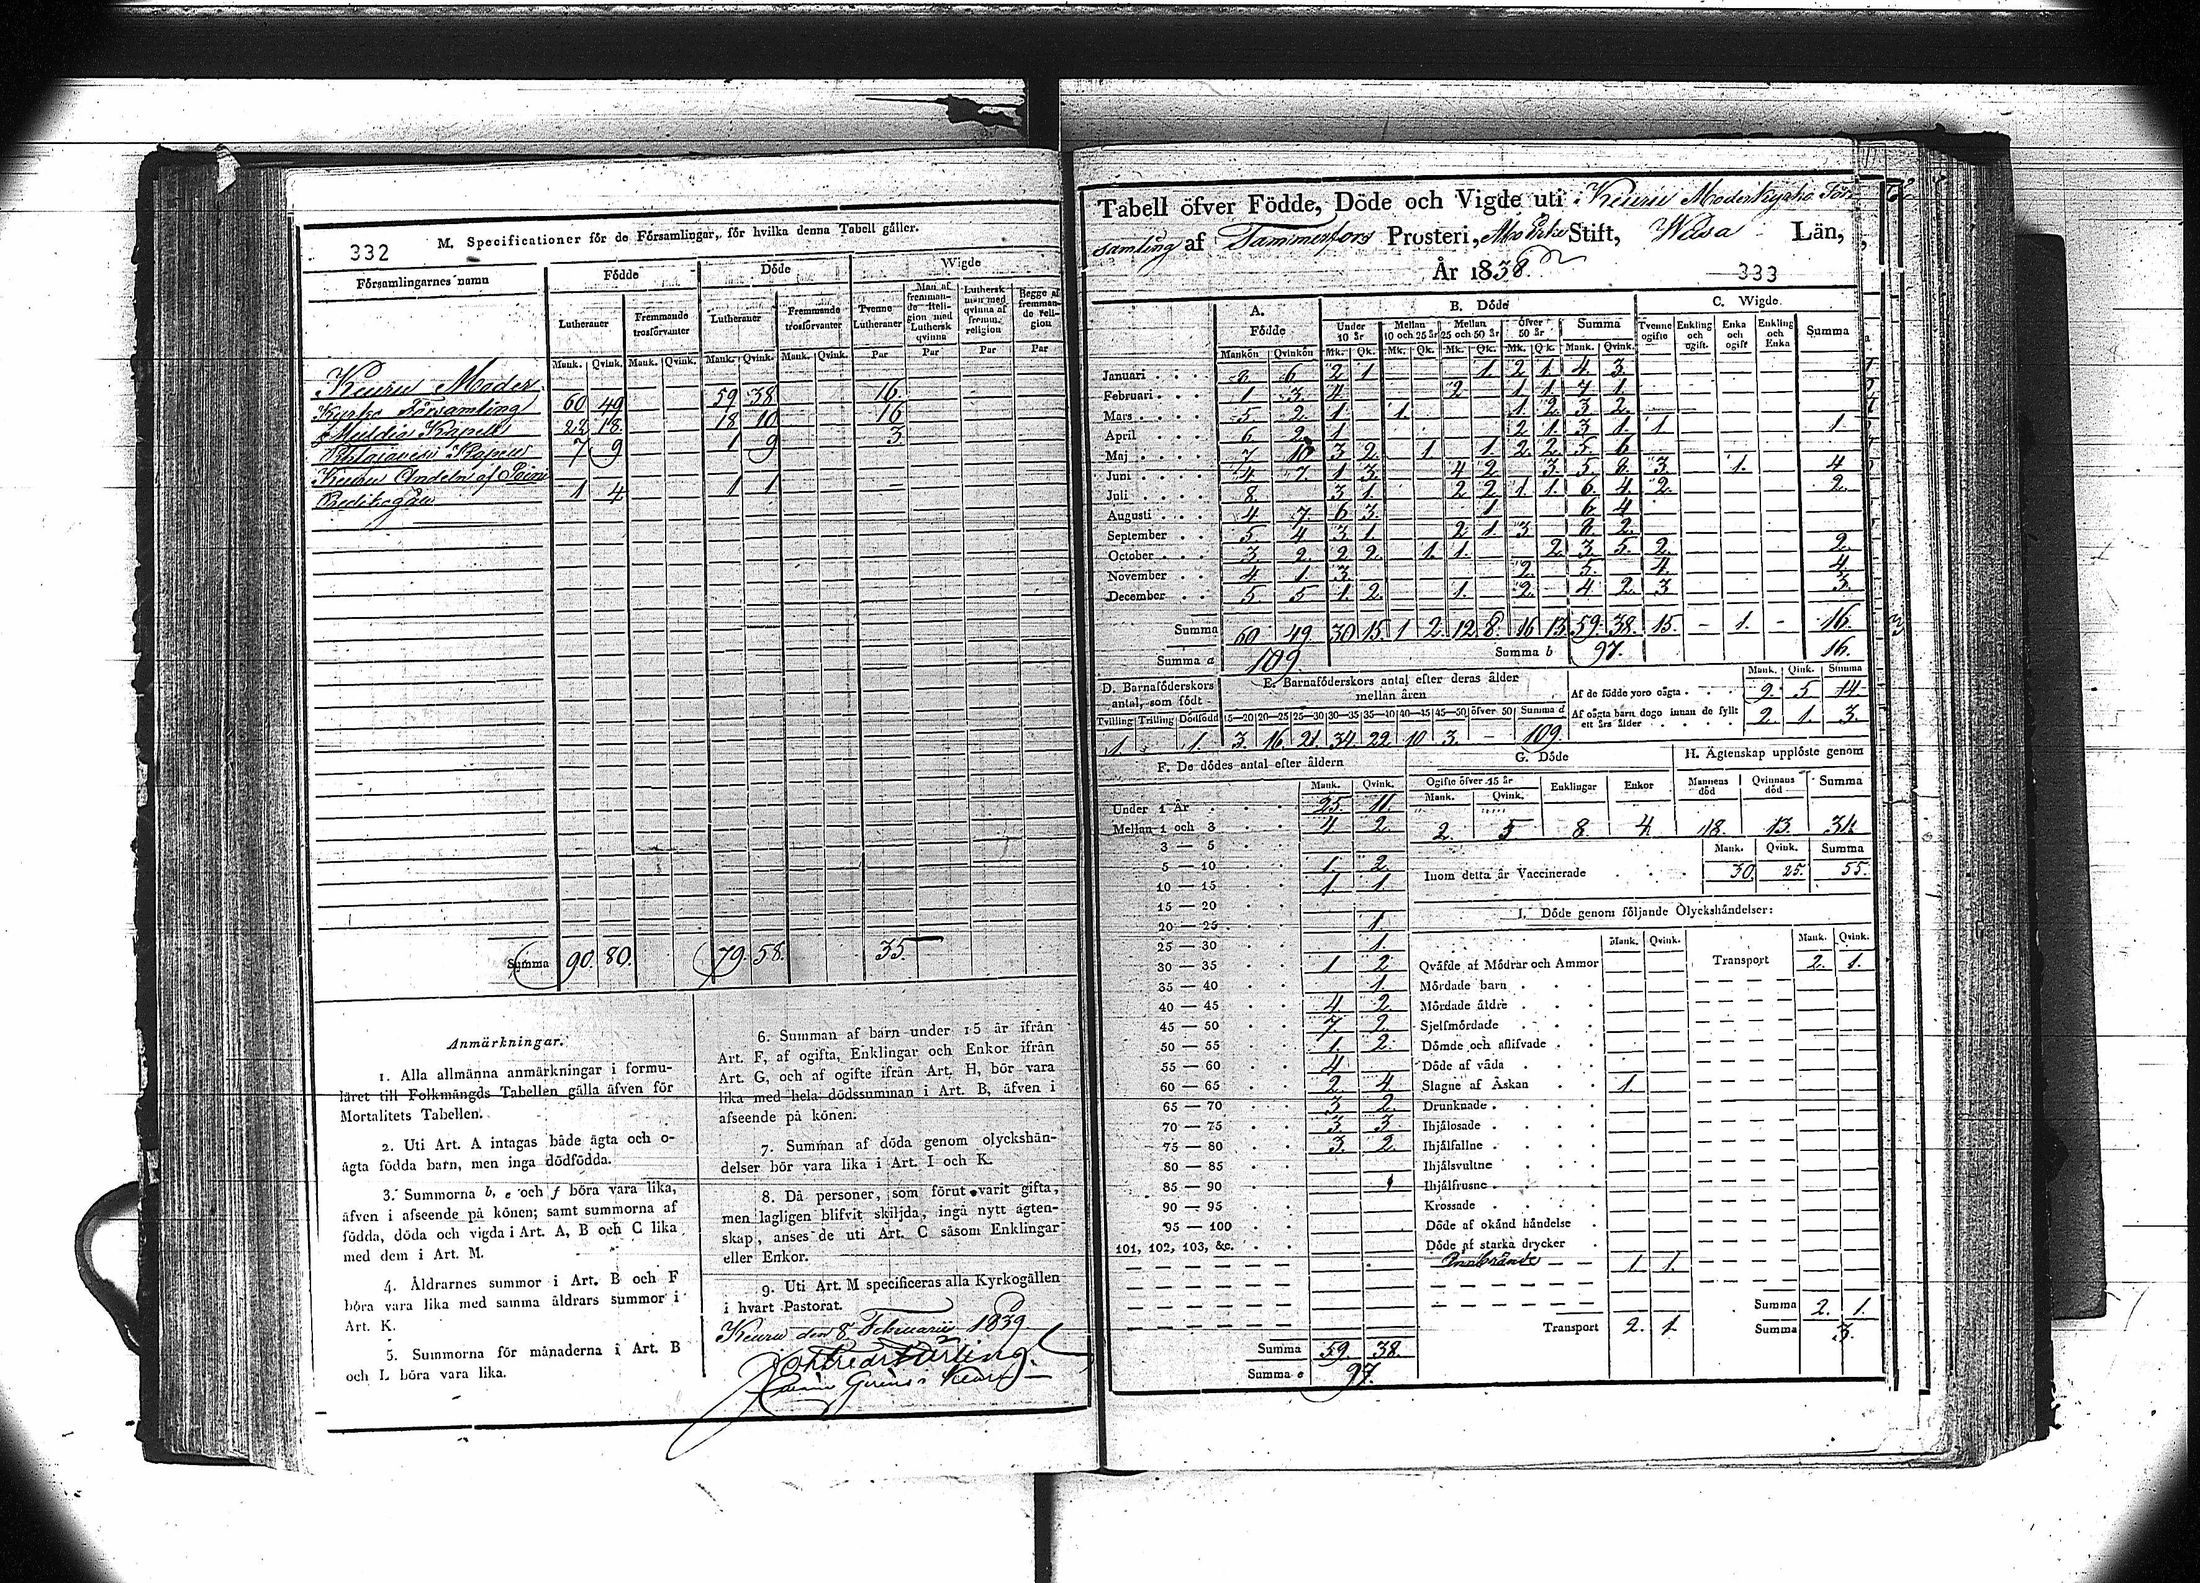 332
M. Specificationer för de Församlingar, för hvilka denna Tabell gäller.
Församlingarnes namn | Födde | Döde | Wigde
Lutheraner | Fremmande trosförvanter | Lutheraner | Fremmande trosförvanter | Tvenne Lutheraner | Man af fremmande Religion med Luthersk qvinna | Luthersk man med qvinna af fremm. religion | Begge af fremmande religion
Mank. | Qvink. | Mank. | Qvink. | Mank. | Qvink. | Mank. | Qvink. | Par | Par | Par | Par
Keuru Moder
Kyrko Församling | 60 | 49 | 59 | 38 | 16
Kapell | 22 | 18 | 18 | 10 | 16
7 | 9 | 1 | 9 | 3
Keuru Andeln af
1 | 4 | 1 | 1
Summa | 90. | 80. | 79. | 58. | 35
Anmärkningar.
1. Alla allmänna anmärkningar i formu-
läret till Folkmängds Tabellen gälla äfven för
Mortalitets Tabellen.
2. Uti Art. A intagas både ägta och o-
ägta födda barn, men inga dödfödda.
3. Summorna b, e och f böra vara lika,
äfven i afseende på könen; samt summorna af
födda, döda och vigda i Art. A, B och C lika
med dem i Art. M.
4. Åldrarnes summor i Art. B och F
böra vara lika med samma åldrars summor i
Art. K.
5. Summorna för månaderna i Art. B
och L böra vara lika.
6. Summan af barn under 15 år ifrån
Art. F, af ogifta, Enklingar och Enkor ifrån
Art. G, och af ogifte ifrån Art. H, bör vara
lika med hela dödssumman i Art. B, äfven i
afseende på könen.
7. Summan af döda genom olyckshän-
delser bör vara lika i Art. I och K.
8. Då personer, som förut varit gifta,
men lagligen blifvit skiljda, ingå nytt ägten-
skap, anses de uti Art. C såsom Enklingar
eller Enkor.
9. Uti Art. M specificeras alla Kyrkogällen
i hvart Pastorat.
Keuru den 8 Februarii 1839
Tabell öfver Födde, Döde och Vigde uti Keuru Moderkyrko För-
samling af Tammerfors Prosteri, Åbo Erke Stift, Wasa Län,
År 1838.
333
A. Födde | B. Döde | C. Wigde.
Mankön | Qvinkön | Under 10 år | Mellan 10 och 25 år | Mellan 25 och 50 år | öfver 50 år | Summa | Tvenne ogifte | Enkling och ogift. | Enka och ogift | Enkling och Enka | Summa
Mk. | Qk. | Mk. | Qk. | Mk. | Qk. | Mk. | Qk. | Mank. | Qvink.
Januari | 8 | 6 | 2 | 1 | 1. | 2 | 1 | 4 | 3
Februari | 1 | 3 | 4 | 2 | 1 | 1 | 7 | 1
Mars | 5 | 2 | 1 | 1. | 1. | 2 | 3 | 2
April | 6 | 2 | 1 | 2 | 1 | 3 | 1 | 1 | 1
Maj | 7 | 10 | 3 | 2 | 1 | 1. | 2 | 2 | 5 | 6
Juni | 4 | 7 | 1 | 3 | 4 | 2 | 3 | 5 | 8 | 3 | 1. | 4
Juli | 8 | 3 | 1. | 2 | 2 | 1 | 1 | 6 | 4 | 2 | 2
Augusti | 4 | 7 | 6 | 3 | 1 | 6 | 4
September | 5 | 4 | 3 | 1 | 2 | 1 | 3 | 8 | 2
October | 3 | 2 | 2 | 2 | 1 | 1. | 2 | 3 | 5 | 2 | 2
November | 4 | 1 | 3 | 2 | 5 | 4 | 4
December | 5 | 5 | 1 | 2 | 1. | 2 | 4 | 2 | 3 | 3
Summa | 60 | 49 | 30 | 15 | 1 | 2 | 12 | 8 | 16 | 13 | 59 | 38 | 15. | - | 1. | - | 16.
Summa a | 109. | Summa b | 97. | 16.
D. Barnaföderskors antal, som födt
Tvilling | Trilling | Dödfödd
1 | 1.
E. Barnaföderskors antal efter deras ålder mellan åren
15—20 | 20—25 | 25—30 | 30—35 | 35—40 | 40—45 | 45—50 | öfver 50 | Summa d
3. | 16 | 21 | 34 | 22 | 10 | 3. | - | 109
Mank. | Qink. | Summa
Af de födde voro oägta | 9 | 5 | 14
Af oägta barn dogo innan de fyllt ett års ålder | 2. | 1. | 3.
F. De dödes antal efter åldern
Mank. | Qvink.
Under 1 År | 25 | 11
Mellan 1 och 3 | 4 | 2
3 — 5
5 — 10 | 1. | 2
10 — 15 | 1. | 1.
15 — 20
20 — 25 | 1
25 — 30 | 1.
30 — 35 | 1 | 2
35 — 40 | 1.
40 — 45 | 4 | 2
45 — 50 | 7. | 2.
50 — 55 | 1. | 2.
55 — 60 | 4
60 — 65 | 2 | 4
65 — 70 | 3 | 2
70 — 75 | 3 | 3
75 — 80 | 3. | 2
80 — 85
85 — 90 | 1
90 — 95
95 — 100
101, 102, 103, &c.
Summa | 59. | 38.
Summa e | 97.
G. Döde
Ogifte öfver 15 år | Enklingar | Enkor
Mank. | Qvink.
2. | 5 | 8 | 4
H. Ägtenskap upplöste genom
Mannens död | Qvinnans död | Summa
18. | 13. | 31.
Mank. | Qvink. | Summa
Inom detta år Vaccinerade | 30 | 25. | 55.
I. Döde genom följande Olyckshändelser:
Mank. | Qvink. | Mank. | Qvink.
Qväfde af Mödrar och Ammor | Transport | 2. | 1.
Mördade barn
Mördade äldre
Sjelfmördade
Dömde och aflifvade
Döde af våda
Slagne af Åskan | 1.
Drunknade
Ihjälosade
Ihjälfallne
Ihjälsvultne
Ihjälfrusne
Krossade
Döde af okänd händelse
Döde af starka drycker
Innebrände | 1. | 1.
Summa | 2. | 1.
Transport | 2. | 1. | Summa | 3.